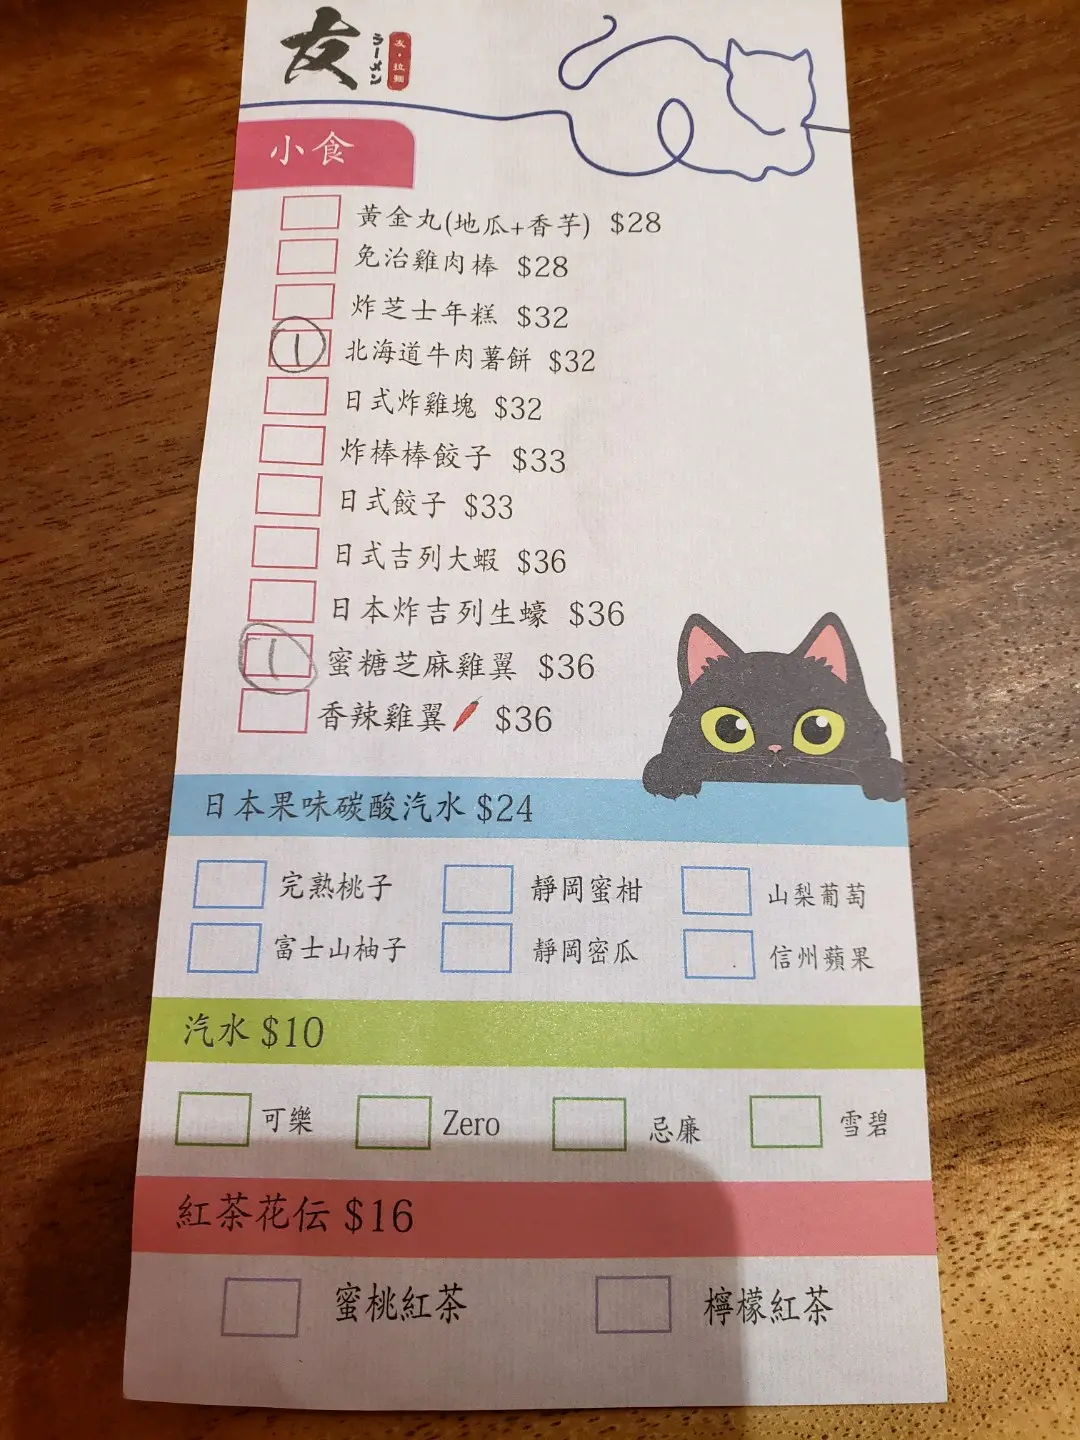 友
ラーメン
友・拉麵
小食
黃金丸(地瓜+香芋) $28
免治雞肉棒 $28
炸芝士年糕 $32
1 北海道牛肉薯餅 $32
日式炸雞塊 $32
炸棒棒餃子 $33
日式餃子 $33
日式吉列大蝦 $36
日本炸吉列生蠔 $36
1 蜜糖芝麻雞翼 $36
香辣雞翼 $36
日本果味碳酸汽水 $24
完熟桃子 靜岡蜜柑 山梨葡萄
富士山柚子 靜岡密瓜 信州蘋果
汽水 $10
可樂 Zero 忌廉 雪碧
紅茶花伝 $16
蜜桃紅茶 檸檬紅茶